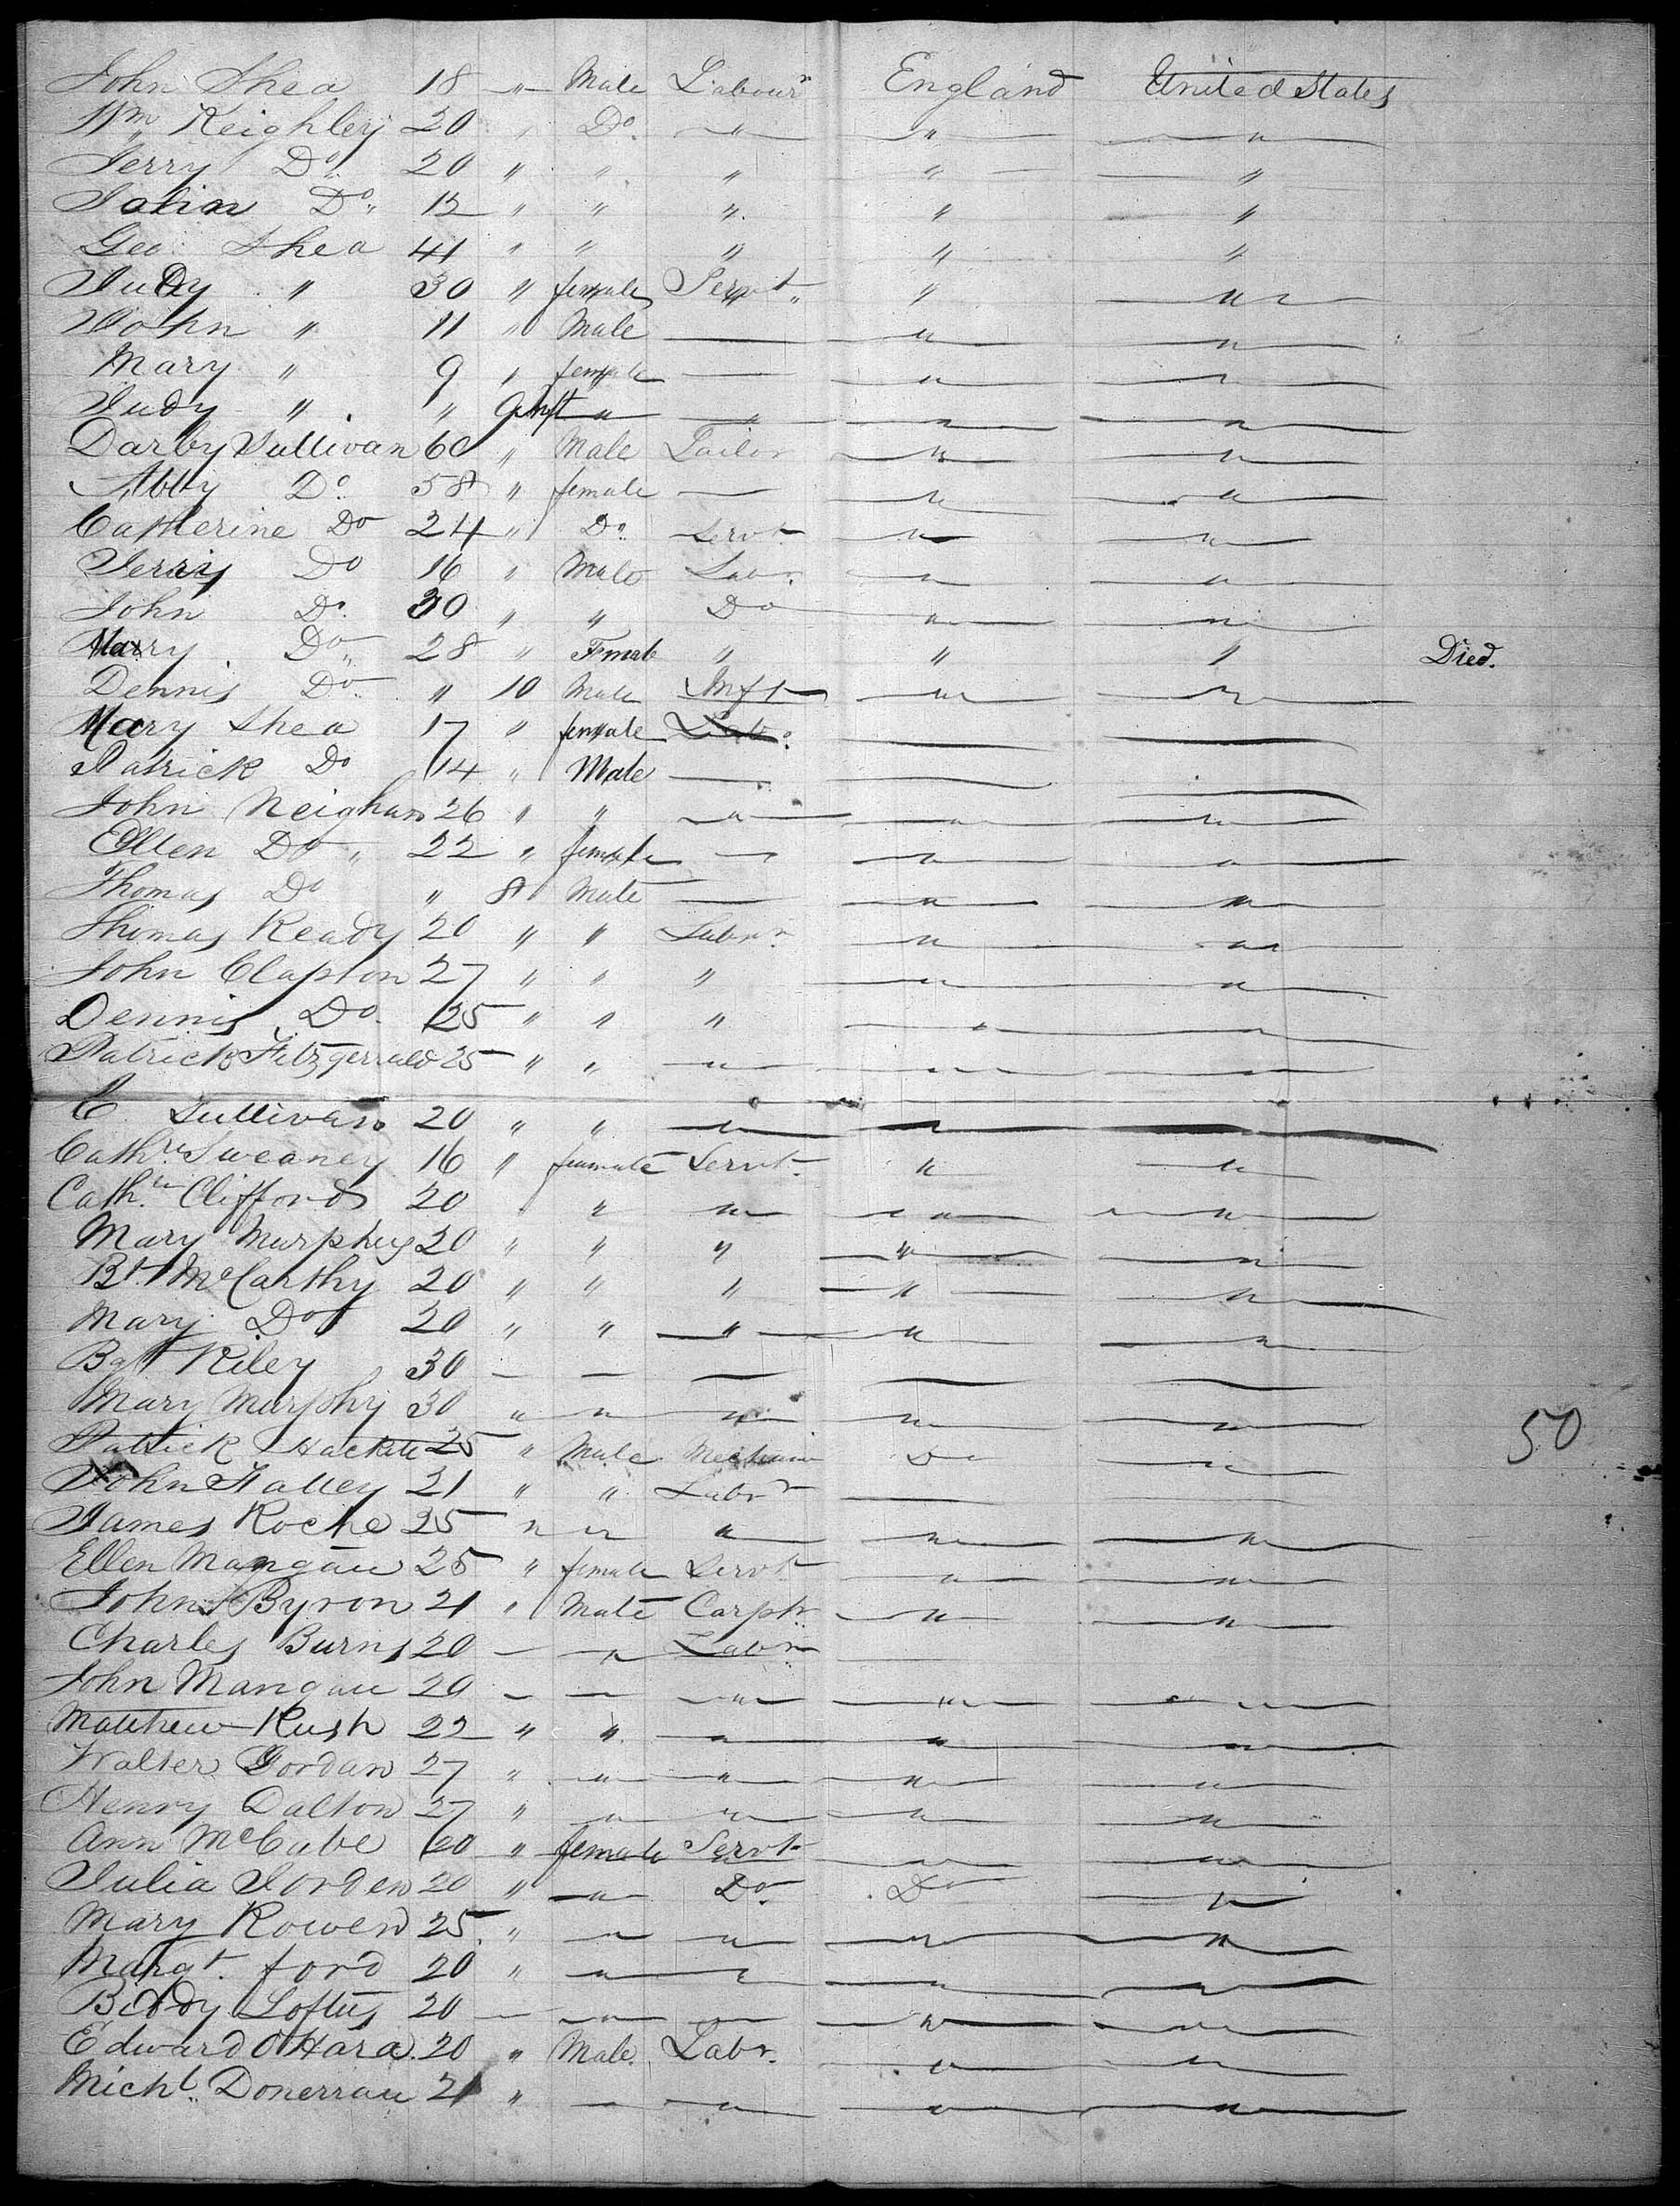 John Shea 18 " Male Labour^r England United States
W^m Keighley 20 " D^o " " "
Jerry D^o 20 " " " " "
D^o 12 " " " " "
Geo Shea 41 " " " " "
Judy " 30 " female Servt " "
John " 11 " Male — " "
Mary " 9 " female — " "
Judy " " 9 Inft " " " "
Darby Sullivan 60 " Male Tailor " "
Abby D^o 58 " female — " "
Catherine D^o 24 " D^o Servt " "
Jerry D^o 16 " Male Labr " "
John D^o 30 " " D^o " "
Mary D^o 28 " Female " " " Died.
Dennis D^o " 10 Male Inft " "
Mary Shea 17 " female Labr — —
Patrick D^o 14 " Male — — —
John Neighan 26 " " " " "
Ellen D^o 22 " female — " "
Thomas D^o " 8 Male — " "
Thomas Ready 20 " " Labr " "
John Clapton 27 " " " " "
Dennis D^o 25 " " " " "
Patrick Fitzgerrald 25 " " " " "
C Sullivan 20 " " " " "
Cath^ne Sweaney 16 " female Servt " "
Cath^ne Clifford 20 " " " " "
Mary Murphy 20 " " " " "
Bt McCarthy 20 " " " " "
Mary D^o 20 " " " " "
Bat Riley 30 — — — — —
Mary Murphy 30 " " " " "
Patrick Hackett 25 " Male Mechanic D^o "
50
John Talley 21 " " Labr — —
James Roche 25 " " " " "
Ellen Mangan 25 " female Servt " "
John Byron 21 " Male Carptr " "
Charles Burns 20 — " Labr —
John Mangan 20 — — " " "
Matthew Rush 22 " " " " "
Walter Jordan 27 " " " " "
Henry Dalton 27 " " " " "
Ann McCabe 20 " female Servt " "
Julia Jorden 20 " " D^o D^o "
Mary Rowen 25 " " " " "
Margt. ford 20 " " " " "
Biddy Loftus 20 — " — " "
Edward OHara 20 " Male Labr. " "
Michl. Donerran 21 " — " " "